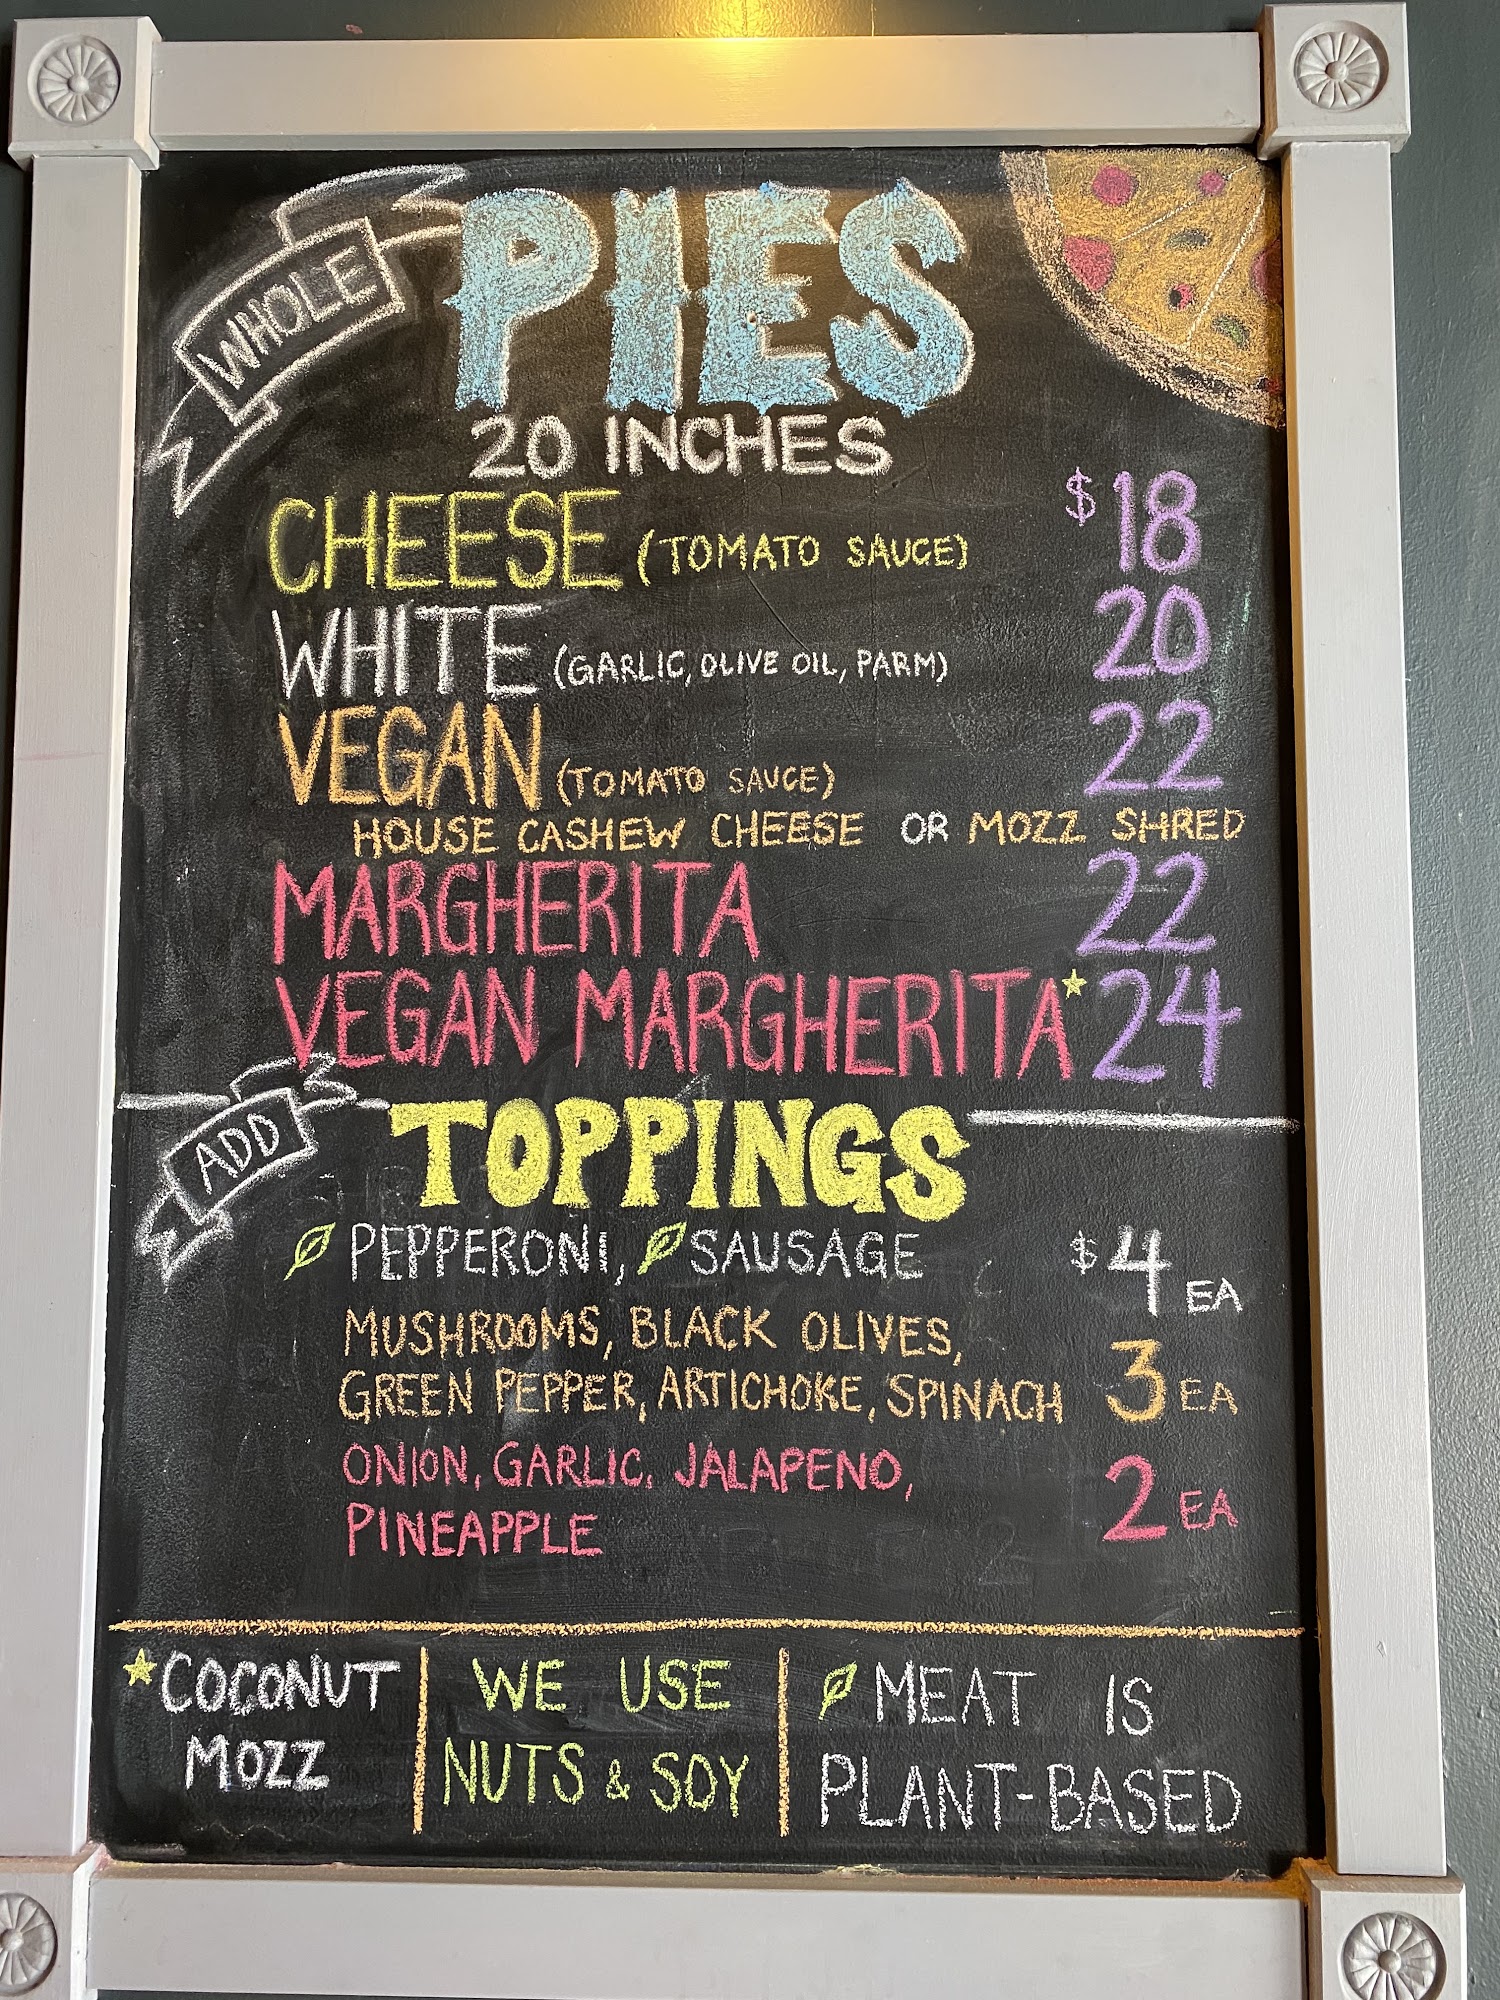 WHOLE PIES
20 INCHES
CHEESE (TOMATO SAUCE) $18
WHITE (GARLIC, OLIVE OIL, PARM) 20
VEGAN (TOMATO SAUCE) 22
HOUSE CASHEW CHEESE OR MOZZ SHRED
MARGHERITA 22
VEGAN MARGHERITA* 24
ADD TOPPINGS
PEPPERONI, SAUSAGE $4 EA
MUSHROOMS, BLACK OLIVES,
GREEN PEPPER, ARTICHOKE, SPINACH 3 EA
ONION, GARLIC, JALAPENO,
PINEAPPLE 2 EA
*COCONUT
MOZZ
WE USE
NUTS & SOY
MEAT IS
PLANT-BASED